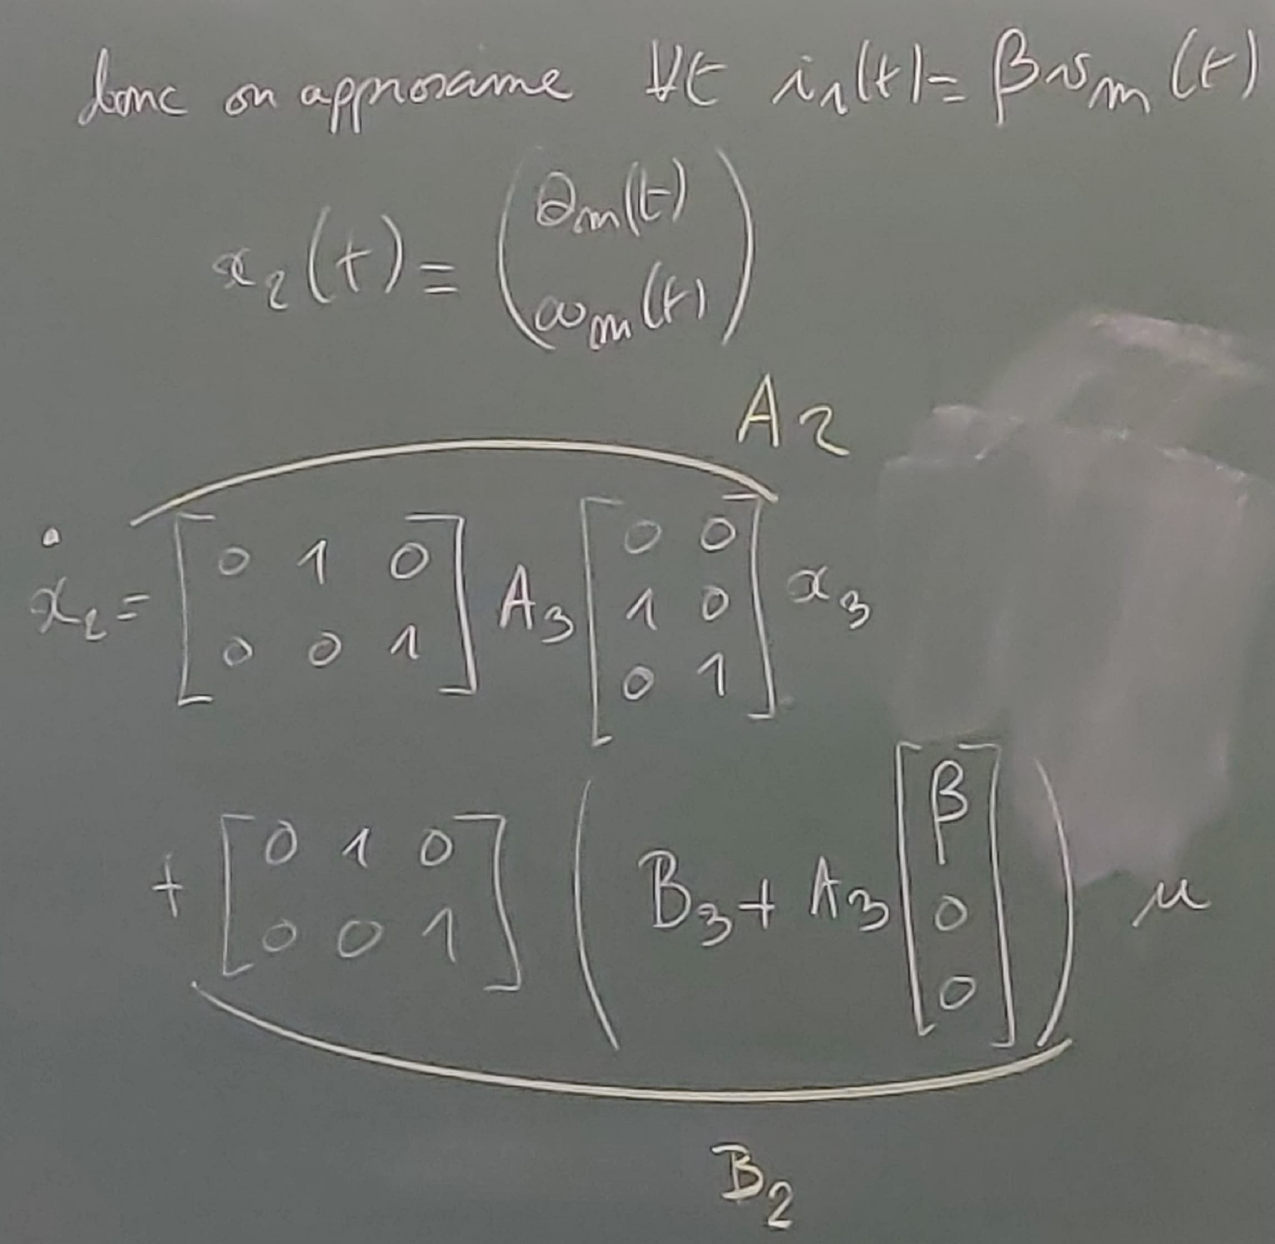 donc on approxime ∀t i₁(t) = βv_m(t)
x₂(t) = (θ_m(t)
ω_m(t))
A₂
ẋ₂ = [0 1 0; 0 0 1] A₃ [0 0; 1 0; 0 1] x₃
+ [0 1 0; 0 0 1] (B₃ + A₃ [β; 0; 0]) u
B₂